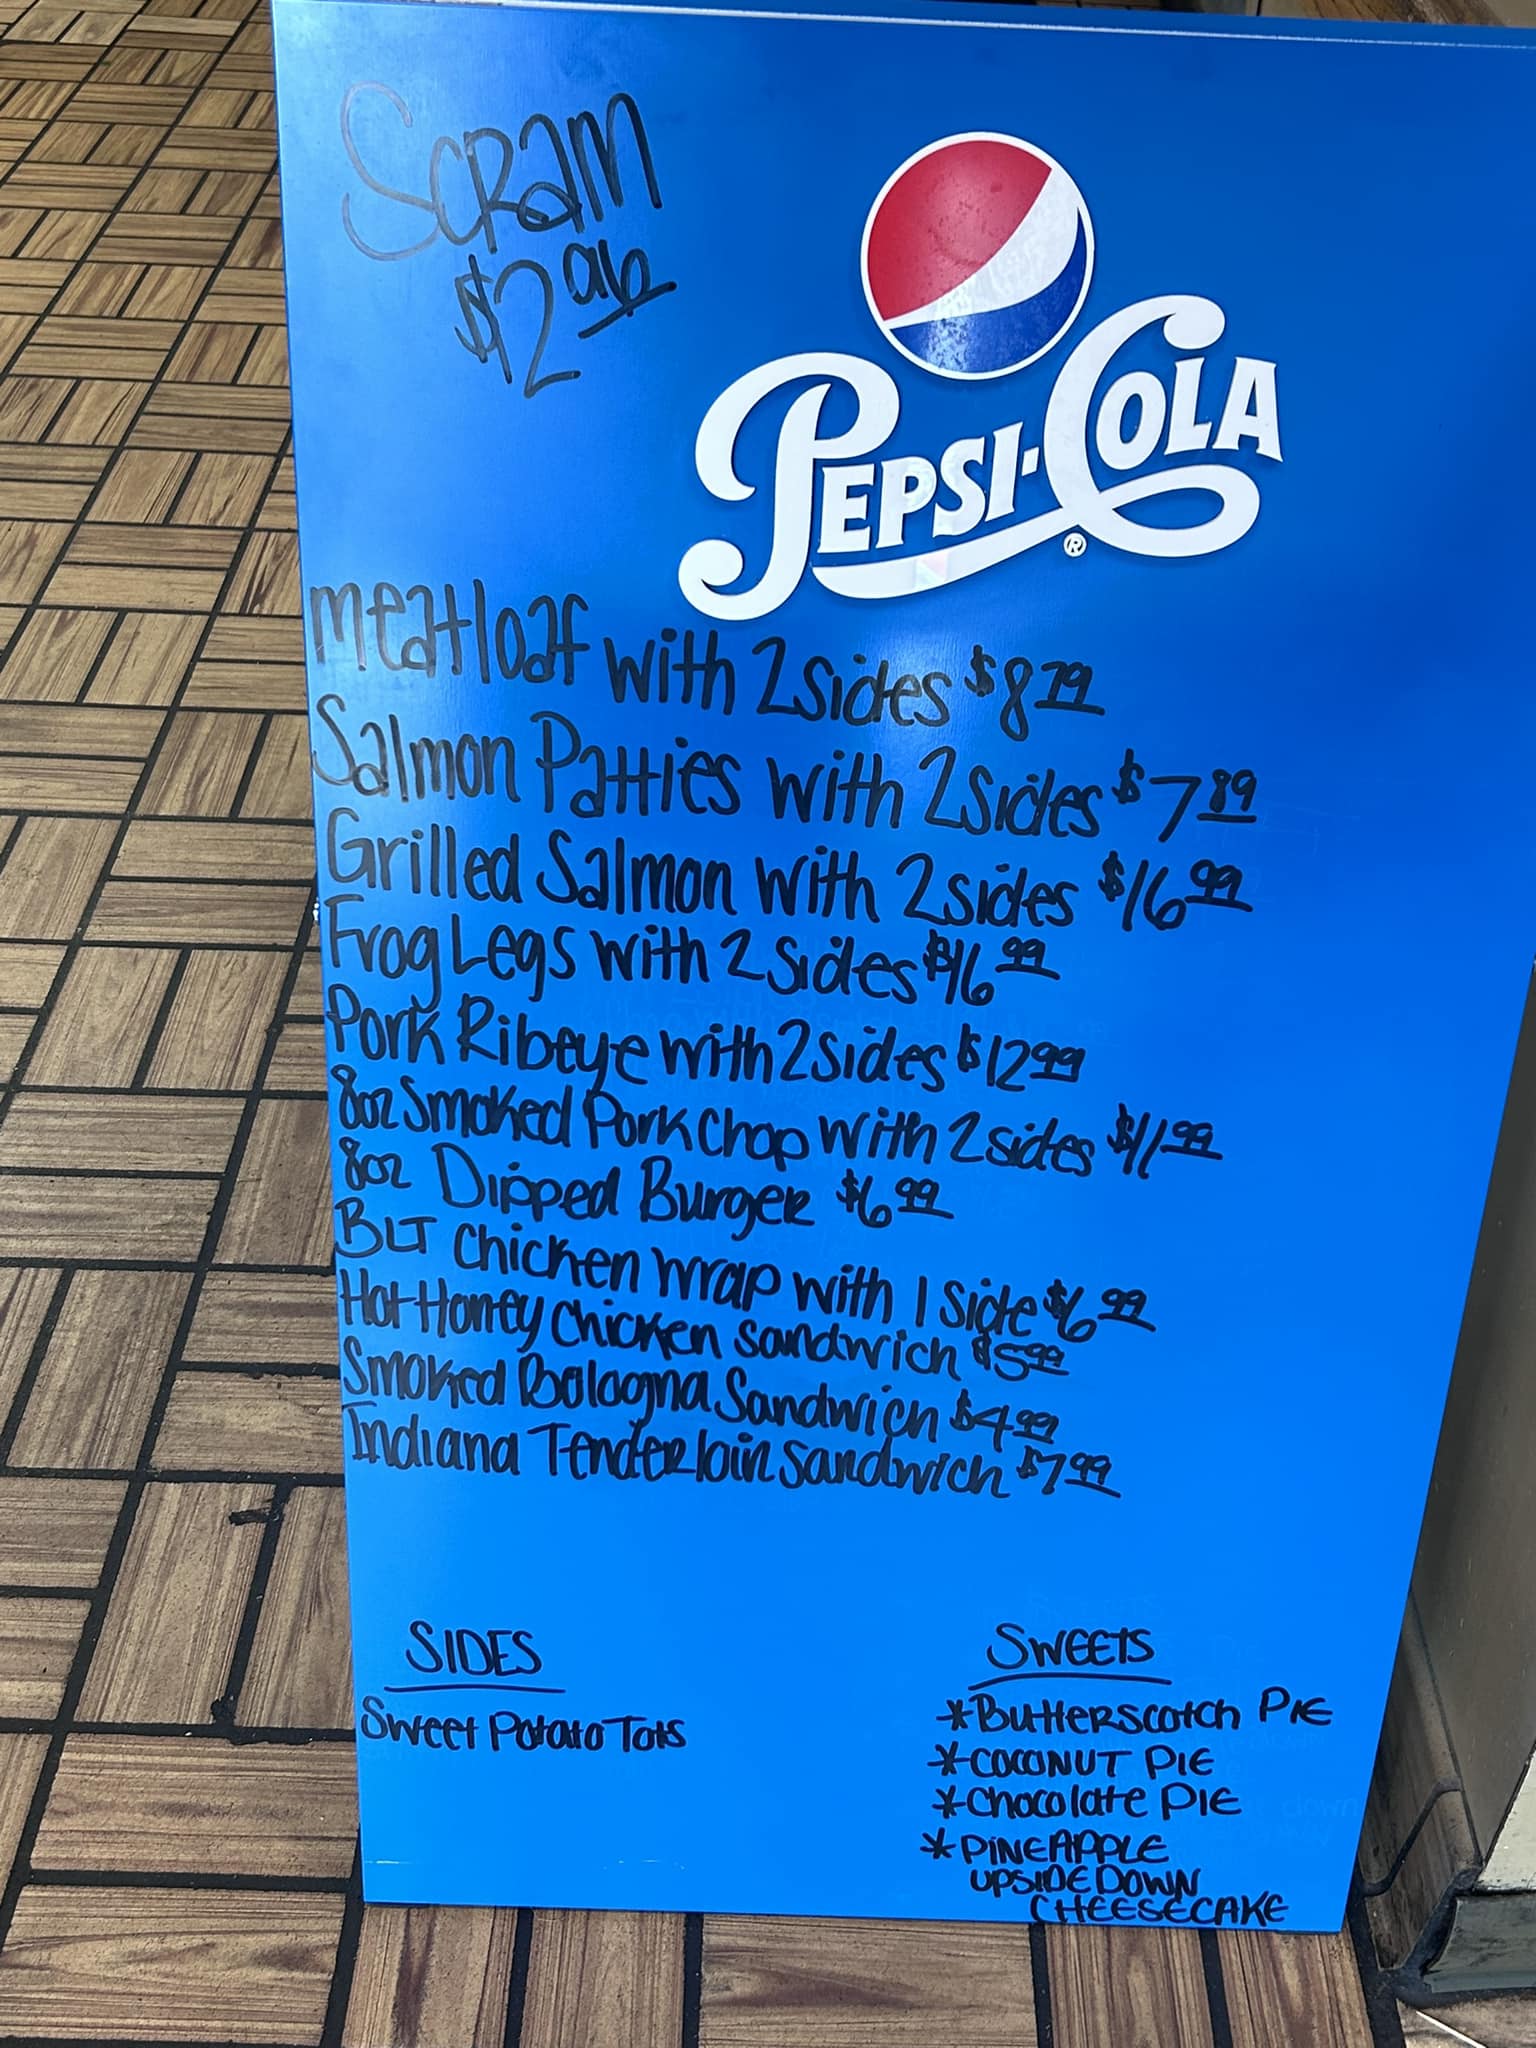 Scram
$2.96
PEPSI-COLA
®
Meatloaf with 2 sides $8.79
Salmon Patties with 2 sides $7.89
Grilled Salmon with 2 sides $16.99
Frog Legs with 2 sides $16.99
Pork Ribeye with 2 sides $12.99
8oz Smoked Pork Chop with 2 sides $11.99
8oz Dipped Burger $6.99
BLT Chicken Wrap with 1 side $6.99
Hot Honey Chicken Sandwich $5.99
Smoked Bologna Sandwich $4.99
Indiana Tenderloin Sandwich $7.99
SIDES
Sweet Potato Tots
SWEETS
*Butterscotch PIE
*COCONUT PIE
*Chocolate PIE
*PINEAPPLE
UPSIDE DOWN
CHEESECAKE